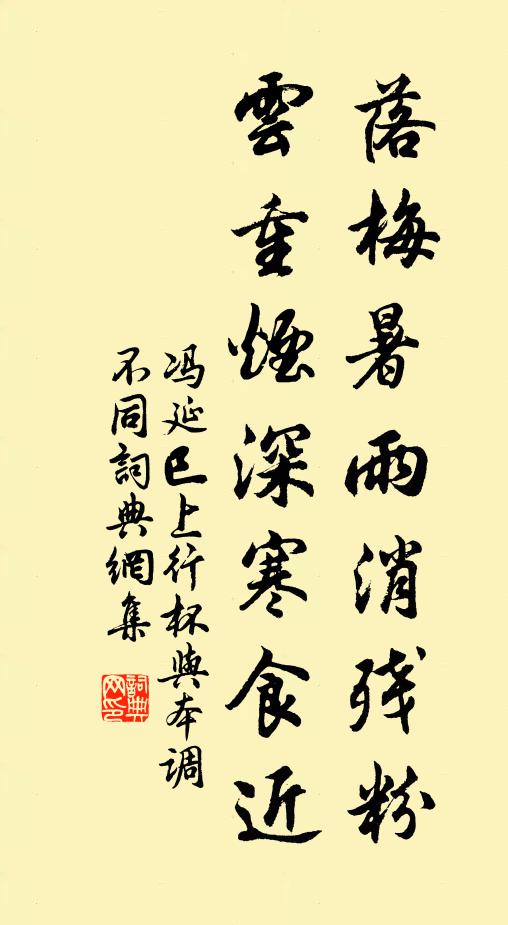 落梅暑雨消残粉
雲重煙深寒食近
冯延巳上行杯與本调
不同詞典網集
詞典
网印